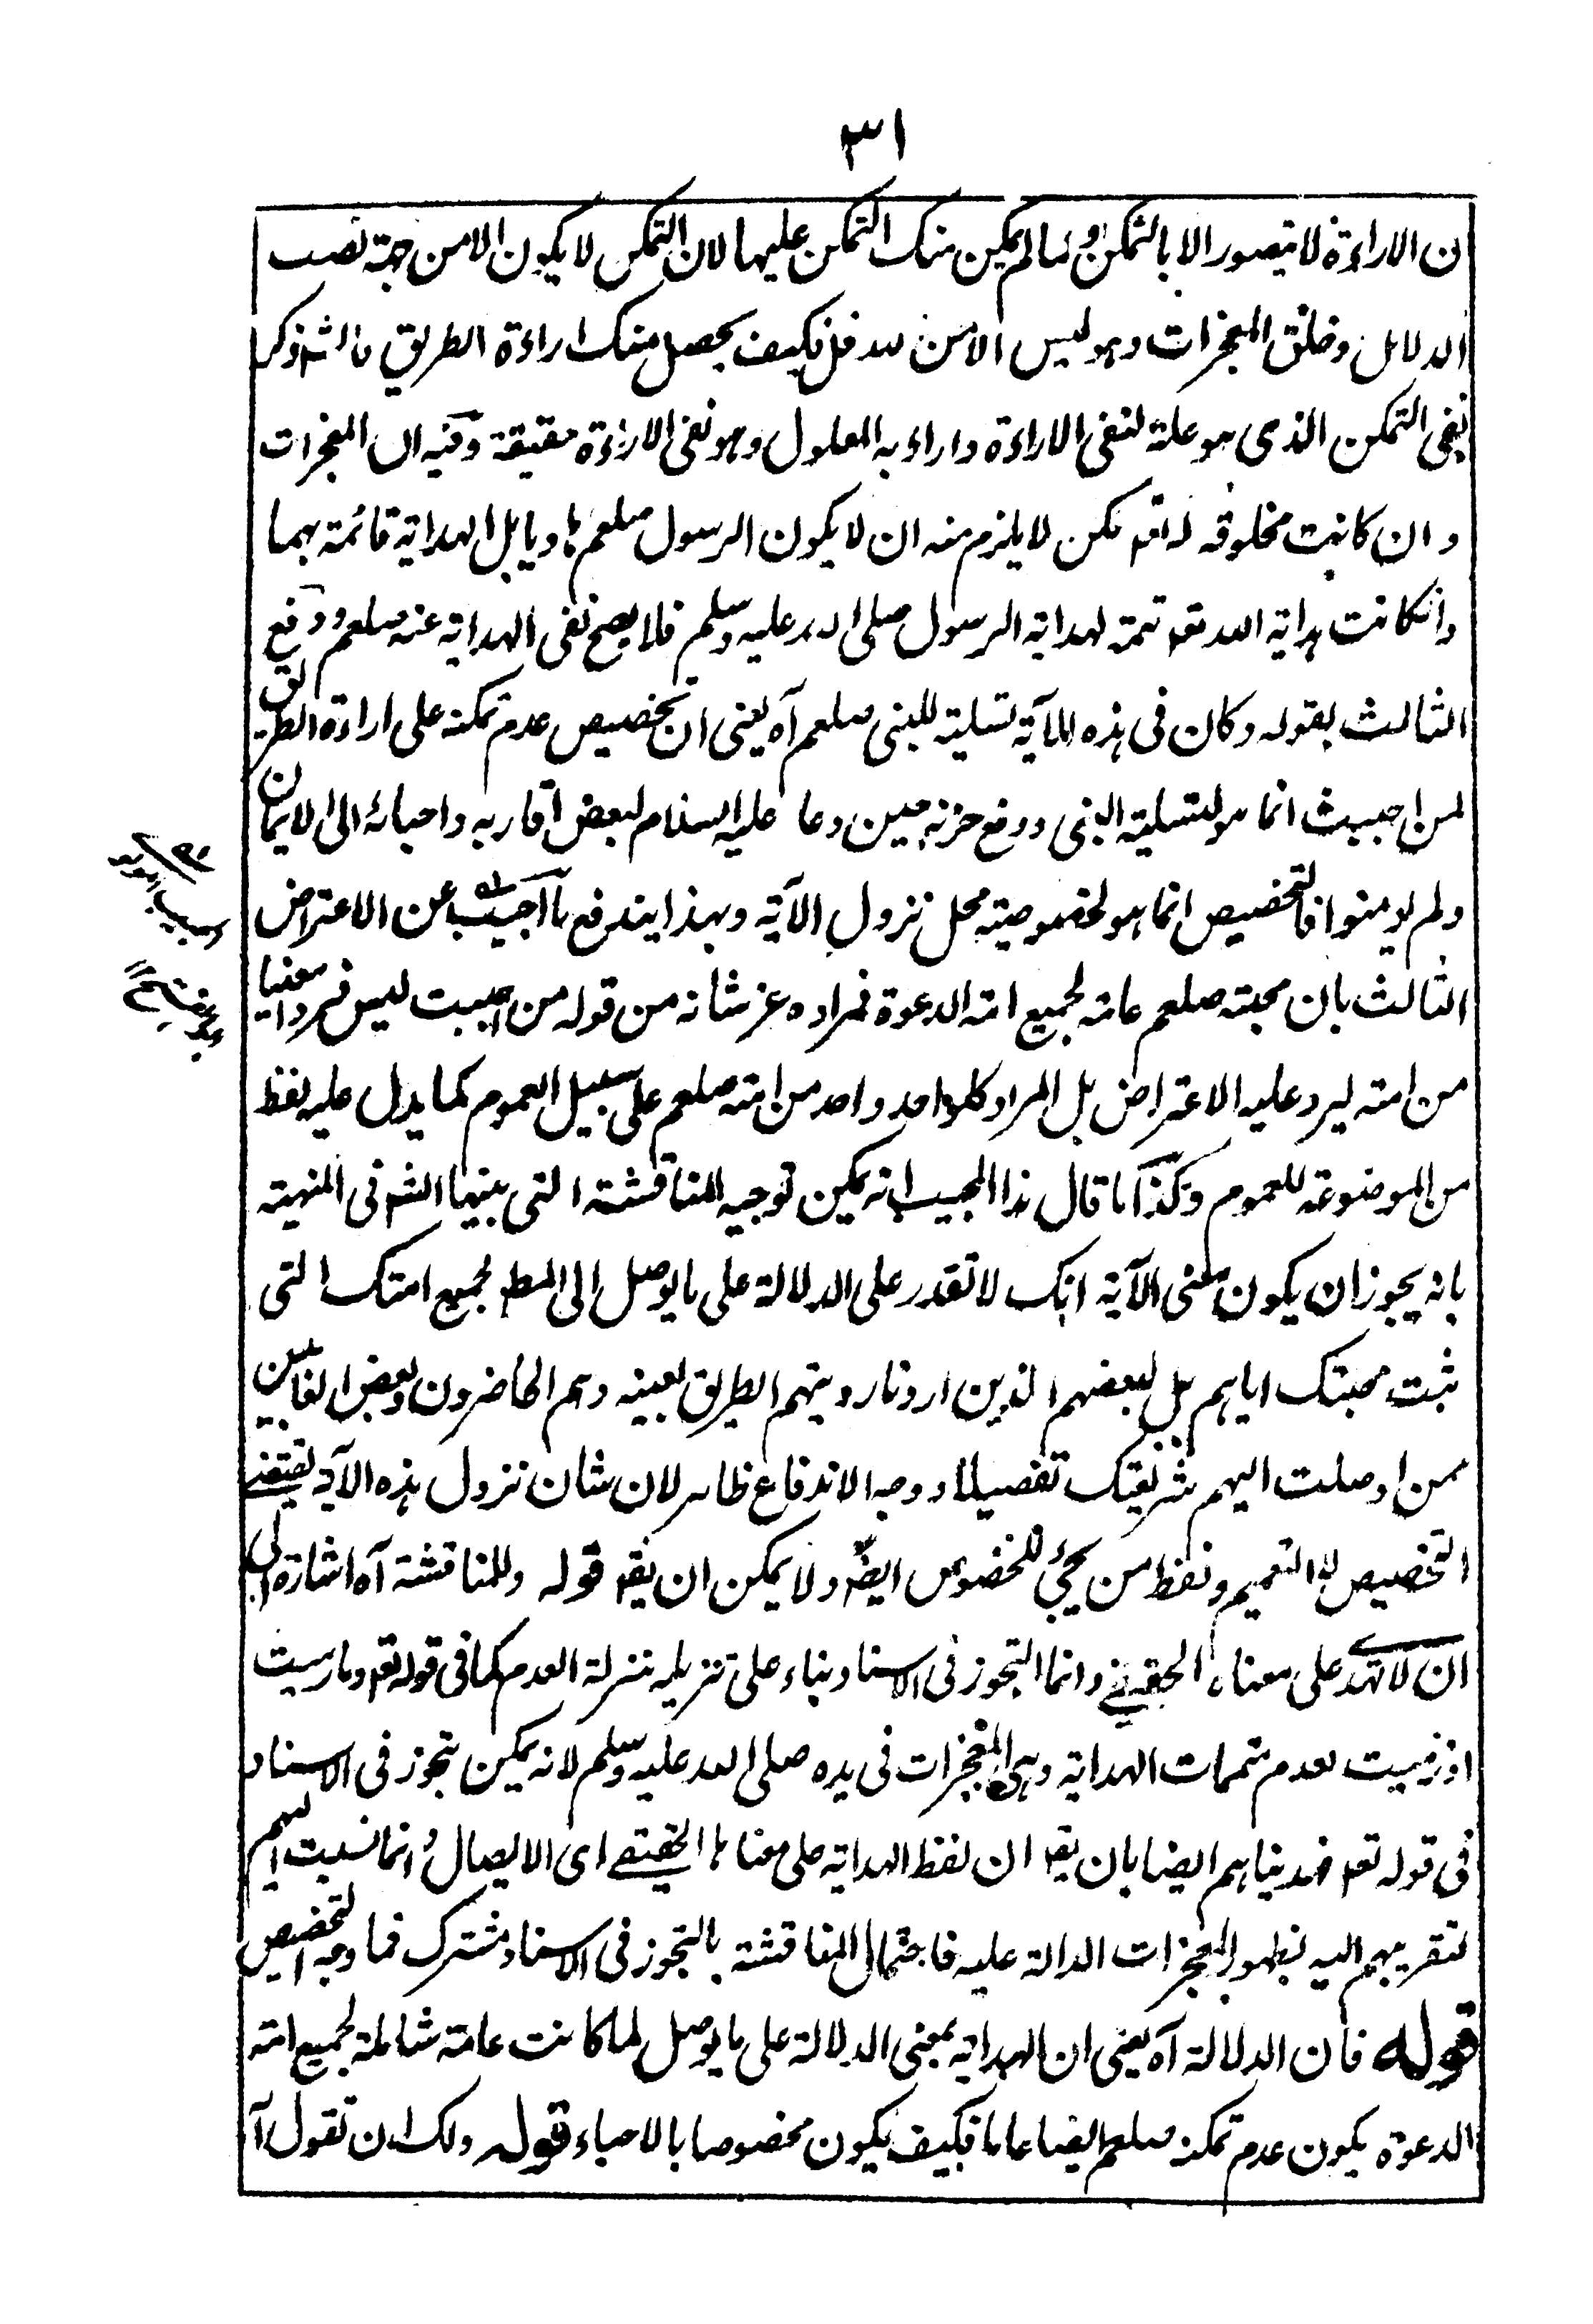 ٣١
ن الاراءة لا يتصور الا بالتمكن ولما لم يمكن منك التمكن عليها لان التمكن لا يكون الا من جهة نصب
الدلايل وخلق المعجزات وهو ليس الا من الله فكيف يحصل منك اراءة الطريق فالشم ذكر
نفى التمكن الذى هو علة لنفى الاراءة واراد به المعلول وهو نفى الاراءة حقيقة وفيه ان المعجزات
وان كانت مخلوقة له تعم لكن لا يلزم منه ان لا يكون الرسول صلعم هاديا بل الهداية قائمة بهما
وانكانت هداية الله تعم تتمة لهداية الرسول صلى الله عليه وسلم فلا يصح نفى الهداية عنه صلعم ودفع
الثالث بقوله وكان فى هذه الآية تسلية للنبى صلعم آه يعنى ان تخصيص عدم تمكنه على اراءة الطريق
لمن احببت انما هو لتسلية النبى ودفع حزنه حين دعا عليه السلام لبعض اقاربه واحبائه الى الايمان
ولم يومنوا فالتخصيص انما هو لخصوصية محل نزول الآية وبهذا يندفع ما اجيب عن الاعتراض
الثالث بان محبته صلعم عامة لجميع امة الدعوة فمراده عز شانه من قوله من احببت ليس فردا معنيا
من امته ليرد عليه الاعتراض بل المراد كل واحد واحد من امته صلعم على سبيل العموم كما يدل عليه لفظ
من الموضوعة للعموم وكذا ما قال هذا المجيب انه يمكن توجيه المناقشة التى بينها الشم فى المنهية
بانه يجوز ان يكون معنى الآية انك لا تقدر على الدلالة على ما يوصل الى المط لجميع امتك التى
ثبت محبتك اياهم بل لبعضهم الذين اردنا رويتهم الطريق بعينه وهم الحاضرون وبعض الغائبين
ممن وصلت اليهم شريعتك تفصيلا ووجه الاندفاع ظاهر لان شان نزول هذه الآية يقتضى
التخصيص لا التعميم ولفظ من يجئ للخصوص ايضا ولا يمكن ان يقم قوله وللمناقشة آه اشارة الى
ان لا تهدى على معناه الحقيقى وانما التجوز فى الاسناد بناء على تنزيله منزلة العدم كما فى قوله تعم وما رميت
اذ رميت لعدم متممات الهداية وهى المعجزات فى يده صلى الله عليه وسلم لانه يمكن تجوز فى الاسناد
فى قوله تعم فهديناهم ايضا بان يقم ان لفظ الهداية على معناها الحقيقى اى الايصال وانما نسبت اليهم
لتقريبهم اليه بظهور المعجزات الدالة عليه فاحتمال المناقشة بالتجوز فى الاسناد مشترك فما وجه التخصيص
قوله فان الدلالة آه يعنى ان الهداية بمعنى الدلالة على ما يوصل لما كانت عامة شاملة لجميع امة
الدعوة يكون عدم تمكنه صلعم ايضا عاما فكيف يكون مخصوصا بالاحباء قوله ولك ان تقول آ